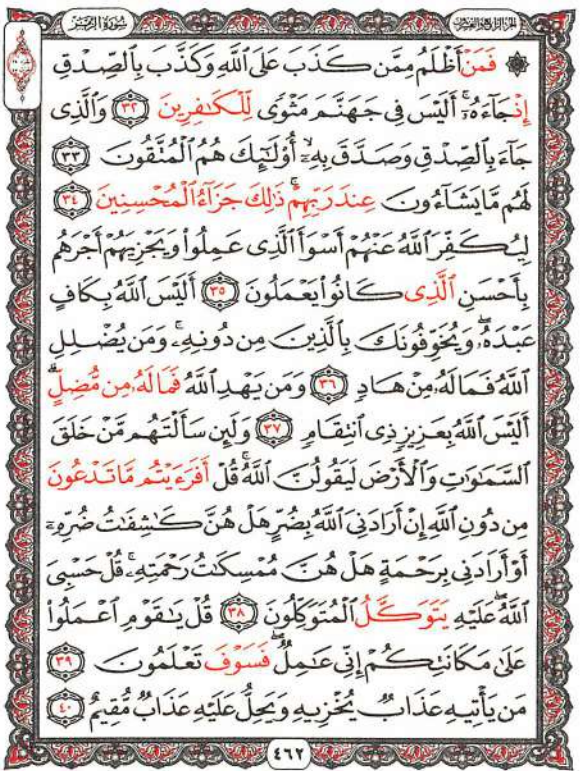 سُورَةُ الزُّمَرِ
الجزء الرابع والعشرون
۞ فَمَنْ أَظْلَمُ مِمَّن كَذَبَ عَلَى ٱللَّهِ وَكَذَّبَ بِٱلصِّدْقِ
إِذْ جَآءَهُۥٓ ۚ أَلَيْسَ فِى جَهَنَّمَ مَثْوًى لِّلْكَـٰفِرِينَ ٣٢ وَٱلَّذِى
جَآءَ بِٱلصِّدْقِ وَصَدَّقَ بِهِۦٓ ۙ أُو۟لَـٰٓئِكَ هُمُ ٱلْمُتَّقُونَ ٣٣
لَهُم مَّا يَشَآءُونَ عِندَ رَبِّهِمْ ۚ ذَٰلِكَ جَزَآءُ ٱلْمُحْسِنِينَ ٣٤
لِيُكَفِّرَ ٱللَّهُ عَنْهُمْ أَسْوَأَ ٱلَّذِى عَمِلُوا۟ وَيَجْزِيَهُمْ أَجْرَهُم
بِأَحْسَنِ ٱلَّذِى كَانُوا۟ يَعْمَلُونَ ٣٥ أَلَيْسَ ٱللَّهُ بِكَافٍ
عَبْدَهُۥ ۖ وَيُخَوِّفُونَكَ بِٱلَّذِينَ مِن دُونِهِۦ ۚ وَمَن يُضْلِلِ
ٱللَّهُ فَمَا لَهُۥ مِنْ هَادٍ ٣٦ وَمَن يَهْدِ ٱللَّهُ فَمَا لَهُۥ مِن مُّضِلٍّ ۗ
أَلَيْسَ ٱللَّهُ بِعَزِيزٍ ذِى ٱنتِقَامٍ ٣٧ وَلَئِن سَأَلْتَهُم مَّنْ خَلَقَ
ٱلسَّمَـٰوَٰتِ وَٱلْأَرْضَ لَيَقُولُنَّ ٱللَّهُ ۚ قُلْ أَفَرَءَيْتُم مَّا تَدْعُونَ
مِن دُونِ ٱللَّهِ إِنْ أَرَادَنِىَ ٱللَّهُ بِضُرٍّ هَلْ هُنَّ كَـٰشِفَـٰتُ ضُرِّهِۦٓ
أَوْ أَرَادَنِى بِرَحْمَةٍ هَلْ هُنَّ مُمْسِكَـٰتُ رَحْمَتِهِۦ ۚ قُلْ حَسْبِىَ
ٱللَّهُ ۖ عَلَيْهِ يَتَوَكَّلُ ٱلْمُتَوَكِّلُونَ ٣٨ قُلْ يَـٰقَوْمِ ٱعْمَلُوا۟
عَلَىٰ مَكَانَتِكُمْ إِنِّى عَـٰمِلٌ ۖ فَسَوْفَ تَعْلَمُونَ ٣٩
مَن يَأْتِيهِ عَذَابٌ يُخْزِيهِ وَيَحِلُّ عَلَيْهِ عَذَابٌ مُّقِيمٌ ٤٠
٤٦٢